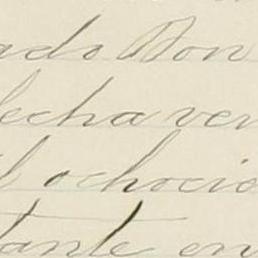 ado Don
fecha vein
l ochocie
tante en